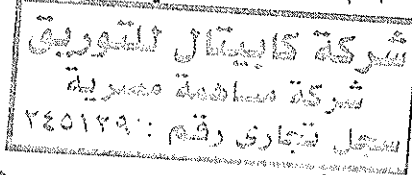 شركة كابيتال للتوريق
شركة مساهمة مصرية
سجل تجارى رقم : ٢٤٥١٢٩٠